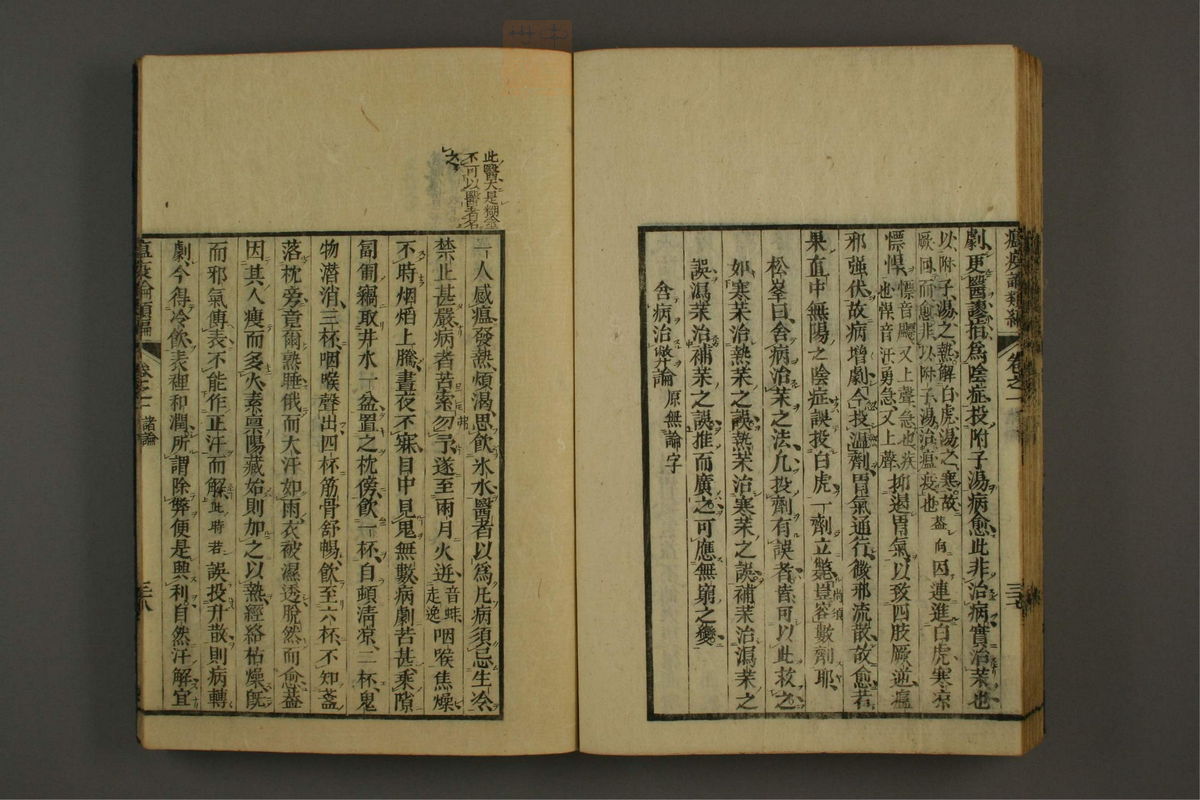 瘟疫論類編 卷之二 三十七
劇更醫謬指爲陰症投附子湯病愈此非治病實治藥也
以附子湯之熱解白虎湯之寒故厥回而愈非以附子湯治瘟疫也 蓋向因連進白虎寒凉
慓悍 慓音飄又上聲急也疾也悍音汗勇急又上聲 抑遏胃氣以致四肢厥逆瘟
邪强伏故病增劇今投溫劑胃氣通行微邪流散故愈者
果直中無陽之陰症誤投白虎一劑立斃豈容數劑耶
松峯曰舍病治藥之法凡投劑有誤者皆可以此救之
如寒藥治熱藥之誤熱藥治寒藥之誤補藥治瀉藥之
誤瀉藥治補藥之誤推而廣之可應無窮之變
舍病治弊論 原無論字
此醫大是糊塗
不可以醫者名
之
一人感瘟發熱煩渴思飲氷水醫者以爲凡病須忌生冷
禁止甚嚴病者苦索勿予遂至兩月火迸 音蚌走逸 咽喉焦燥
不時烟焰上騰晝夜不寐目中見鬼無數病劇苦甚乘隙
匍匐竊取井水一盆置之枕傍飲一杯自頓清凉二杯鬼
物潛消三杯咽喉聲出四杯筋骨舒暢飲至六杯不知盞
落枕旁竟爾熟睡俄而大汗如雨衣被濕透脫然而愈蓋
因其人瘦而多火素稟陽藏始則加之以熱經絡枯燥旣
而邪氣傳表不能作正汗而解 此時若 誤投升散則病轉
劇今得冷飲表裡和潤所謂除弊便是興利自然汗解宜
瘟疫論類編 卷之二 諸論 三十八